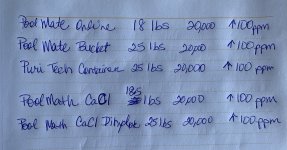 Pool Mate Online 18 lbs 20,000 ↑100ppm
Pool Mate Bucket 25 lbs 20,000 ↑100ppm
Puri Tech Container 25 lbs 20,000 ↑100ppm
Pool Math CaCl 18.5 lbs 20,000 ↑100 ppm
Pool Math CaCl Dihydrate 25 lbs 20,000 ↑100ppm